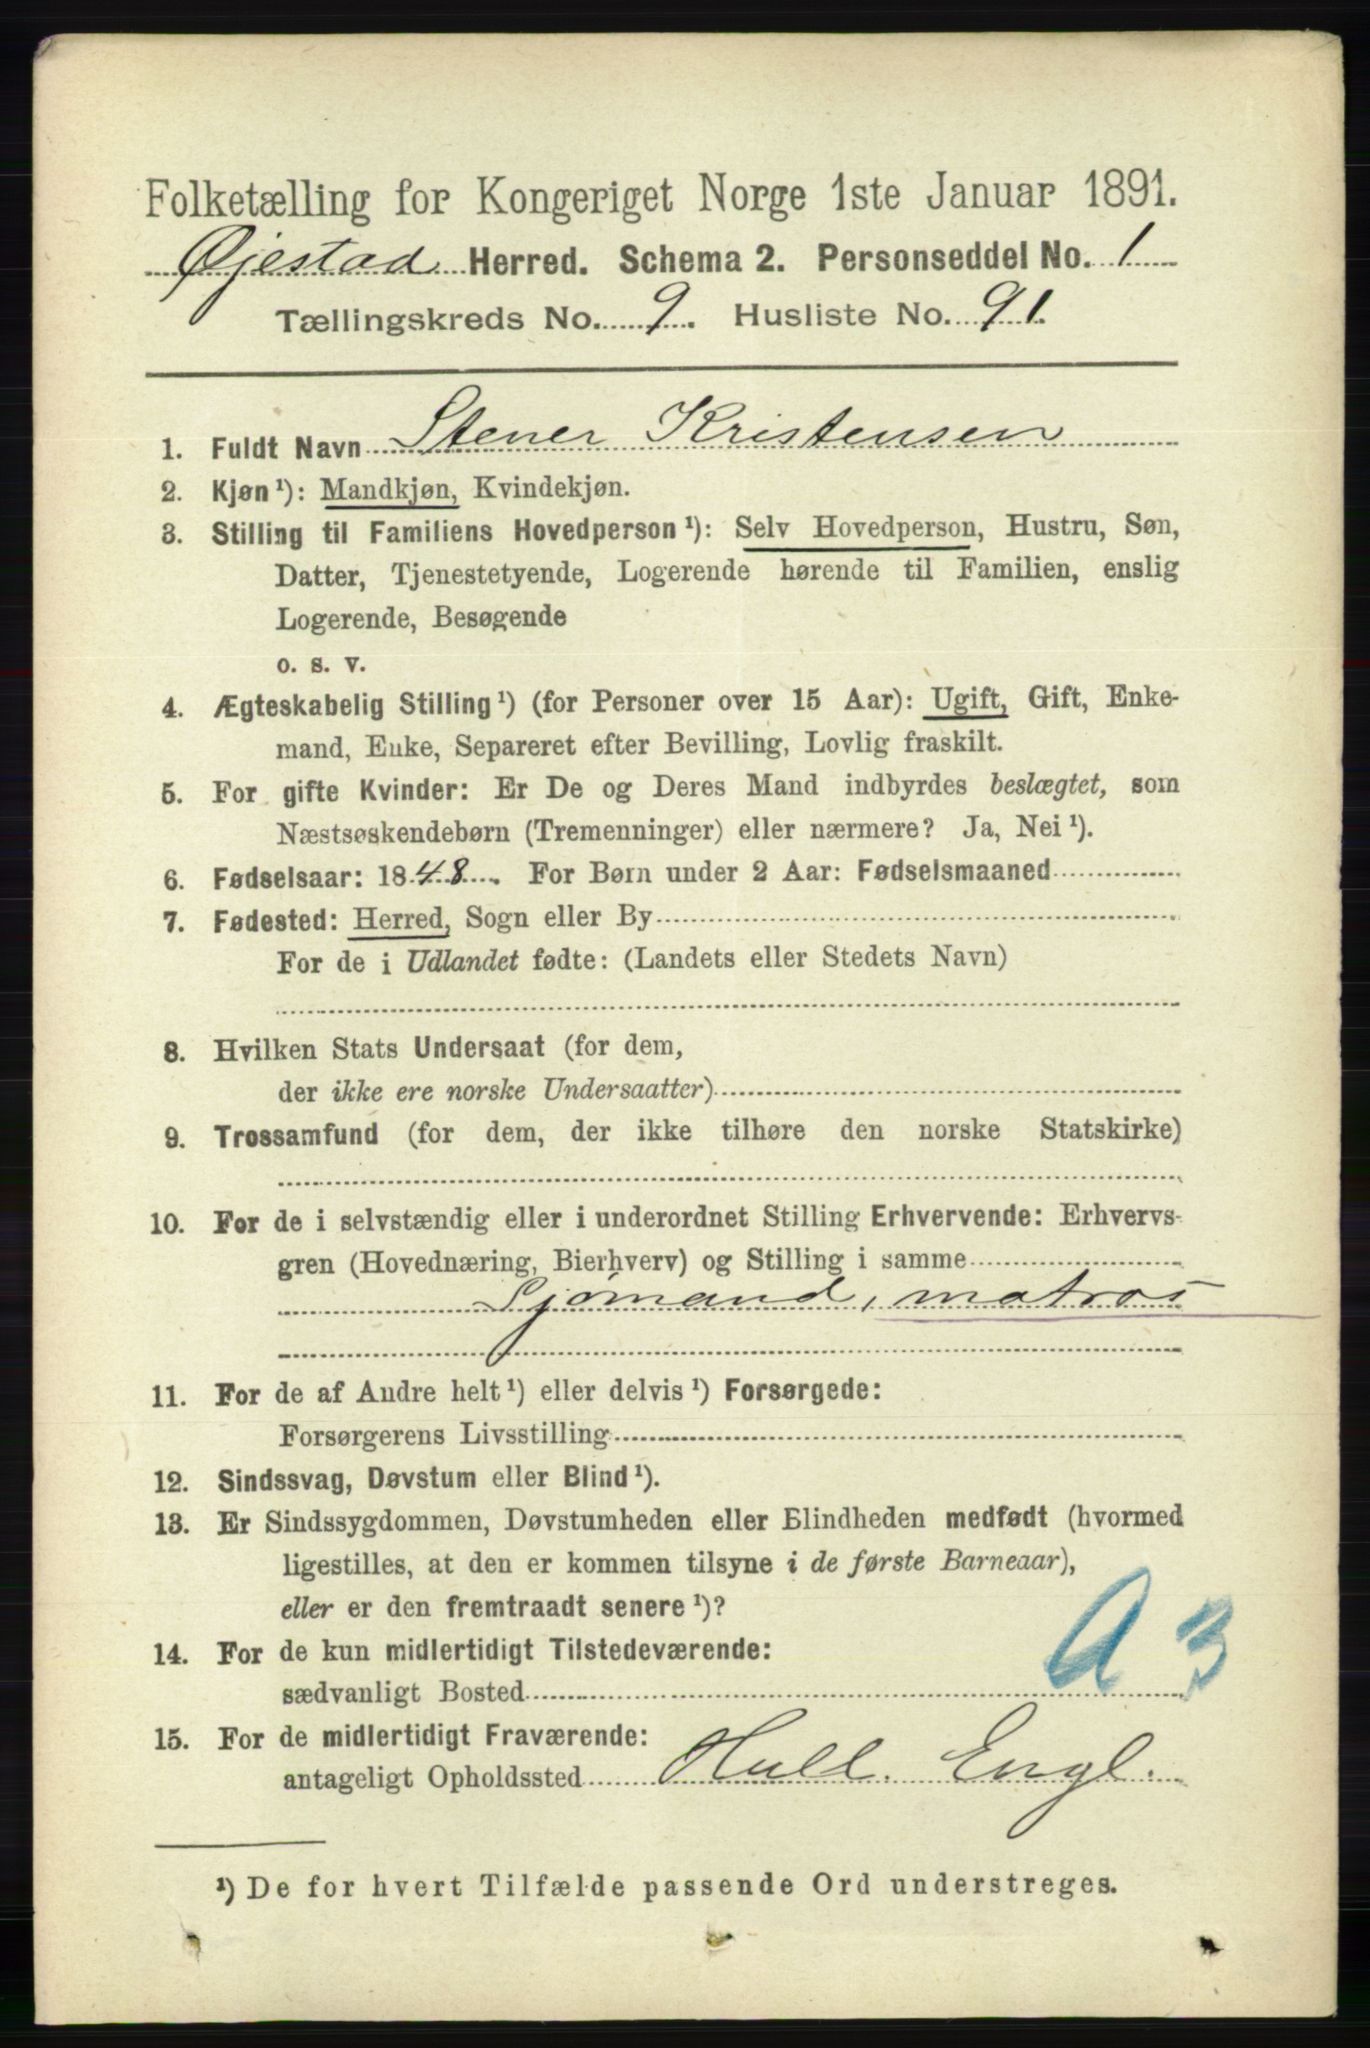 Folketælling for Kongeriget Norge 1ste Januar 1891.
Øjestad Herred. Schema 2. Personseddel No. 1
Tællingskreds No. 9. Husliste No. 91.
1. Fuldt Navn Stener Kristensen
2. Kjøn¹): Mandkjøn, Kvindekjøn.
3. Stilling til Familiens Hovedperson¹): Selv Hovedperson, Hustru, Søn,
Datter, Tjenestetyende, Logerende hørende til Familien, enslig
Logerende, Besøgende
o. s. v.
4. Ægteskabelig Stilling¹) (for Personer over 15 Aar): Ugift, Gift, Enke-
mand, Enke, Separeret efter Bevilling, Lovlig fraskilt.
5. For gifte Kvinder: Er De og Deres Mand indbyrdes beslægtet, som
Næstsøskendebørn (Tremenninger) eller nærmere? Ja, Nei¹).
6. Fødselsaar: 1848. For Børn under 2 Aar: Fødselsmaaned
7. Fødested: Herred, Sogn eller By
For de i Udlandet fødte: (Landets eller Stedets Navn)
8. Hvilken Stats Undersaat (for dem,
der ikke ere norske Undersaatter)
9. Trossamfund (for dem, der ikke tilhøre den norske Statskirke)
10. For de i selvstændig eller i underordnet Stilling Erhvervende: Erhvervs-
gren (Hovednæring, Bierhverv) og Stilling i samme
Sjømand, matros
11. For de af Andre helt¹) eller delvis¹) Forsørgede:
Forsørgerens Livsstilling
12. Sindssvag, Døvstum eller Blind¹).
13. Er Sindssygdommen, Døvstumheden eller Blindheden medfødt (hvormed
ligestilles, at den er kommen tilsyne i de første Barneaar),
eller er den fremtraadt senere¹)?
14. For de kun midlertidigt Tilstedeværende:
sædvanligt Bosted
A 3
15. For de midlertidigt Fraværende:
antageligt Opholdssted Hull. Engl.
¹) De for hvert Tilfælde passende Ord understreges.